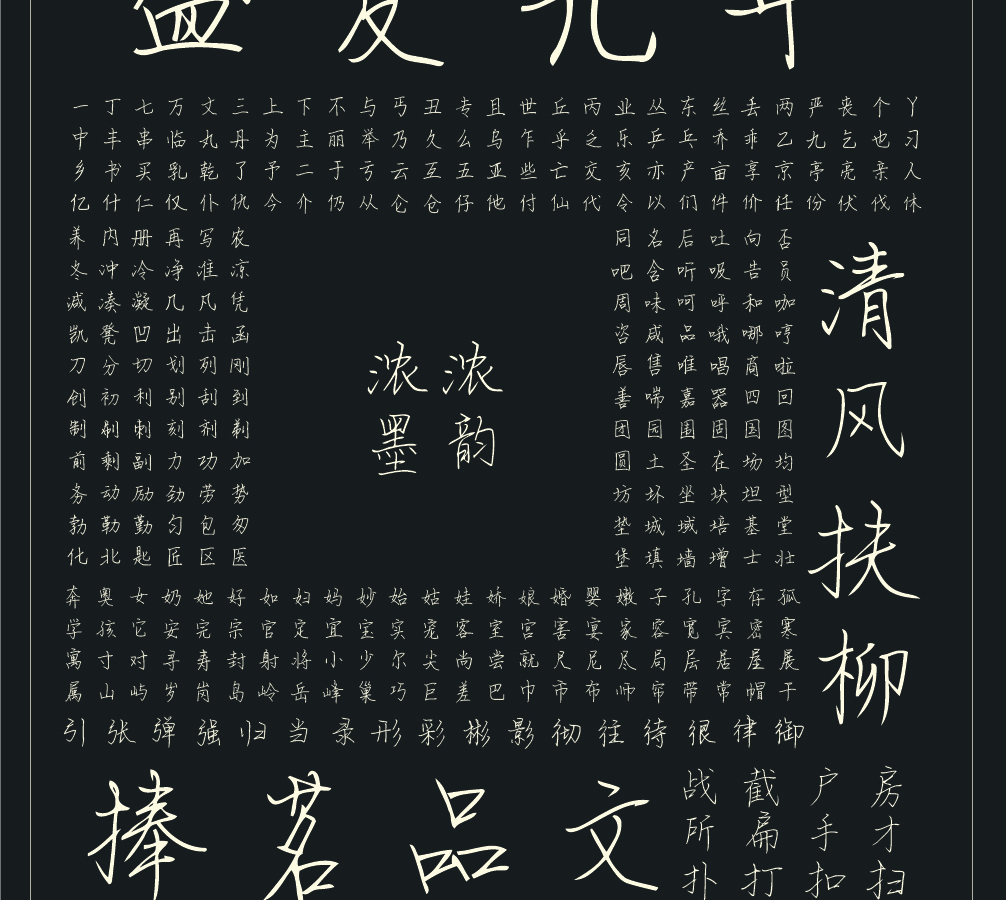 一丁七万文三上下不与丐丑专且世丘丙业丛东丝丢两严丧个丫
中丰串临丸丹为主丽举乃久么乌乍乎乏乐乒乓乔乖乙九乞也习
乡书买乳乾了予二于亏云互五亚些亡交亥亦产亩享京亭亮亲人
亿什仁仅仆仇今介仍从仑仓仔他付仙代令以们件价任份伏伐休
养内册再写农
冬冲冷净准凉
减凑凝几凡凭
凯凳凹出击函
刀分切划列刚
创初利别刮到
制刷刺刻剂剃
前剩副力功加
务动励劲劳势
勃勒勤匀包匆
化北匙匠区医
浓浓
墨韵
同名后吐向否
吧含听吸告员
周味呵呼和咖
咨咸品哦哪哼
唇售唯唱商啦
善喘嘉器四回
团园围固国图
圆土圣在场均
坊坏坐块坦型
垫城域培基堂
堡填墙增士壮
清风扶柳
奔奥女奶她好如妇妈妙始姑娃娇娘婚婴嫩子孔字存孤
学孩它安完宗官定宜宝实宠客室宫害宴家容宽宾密寒
寓寸对寻寿封射将小少尔尖尚尝就尺尼尽局层居屋展
属山屿岁岗岛岭岳峰巢巧巨差巴巾市布师帘带常帽干
引张弹强归当录形彩彬影彻往待很律御
捧茗品文
战截户房
所扁手才
扑打扣扫